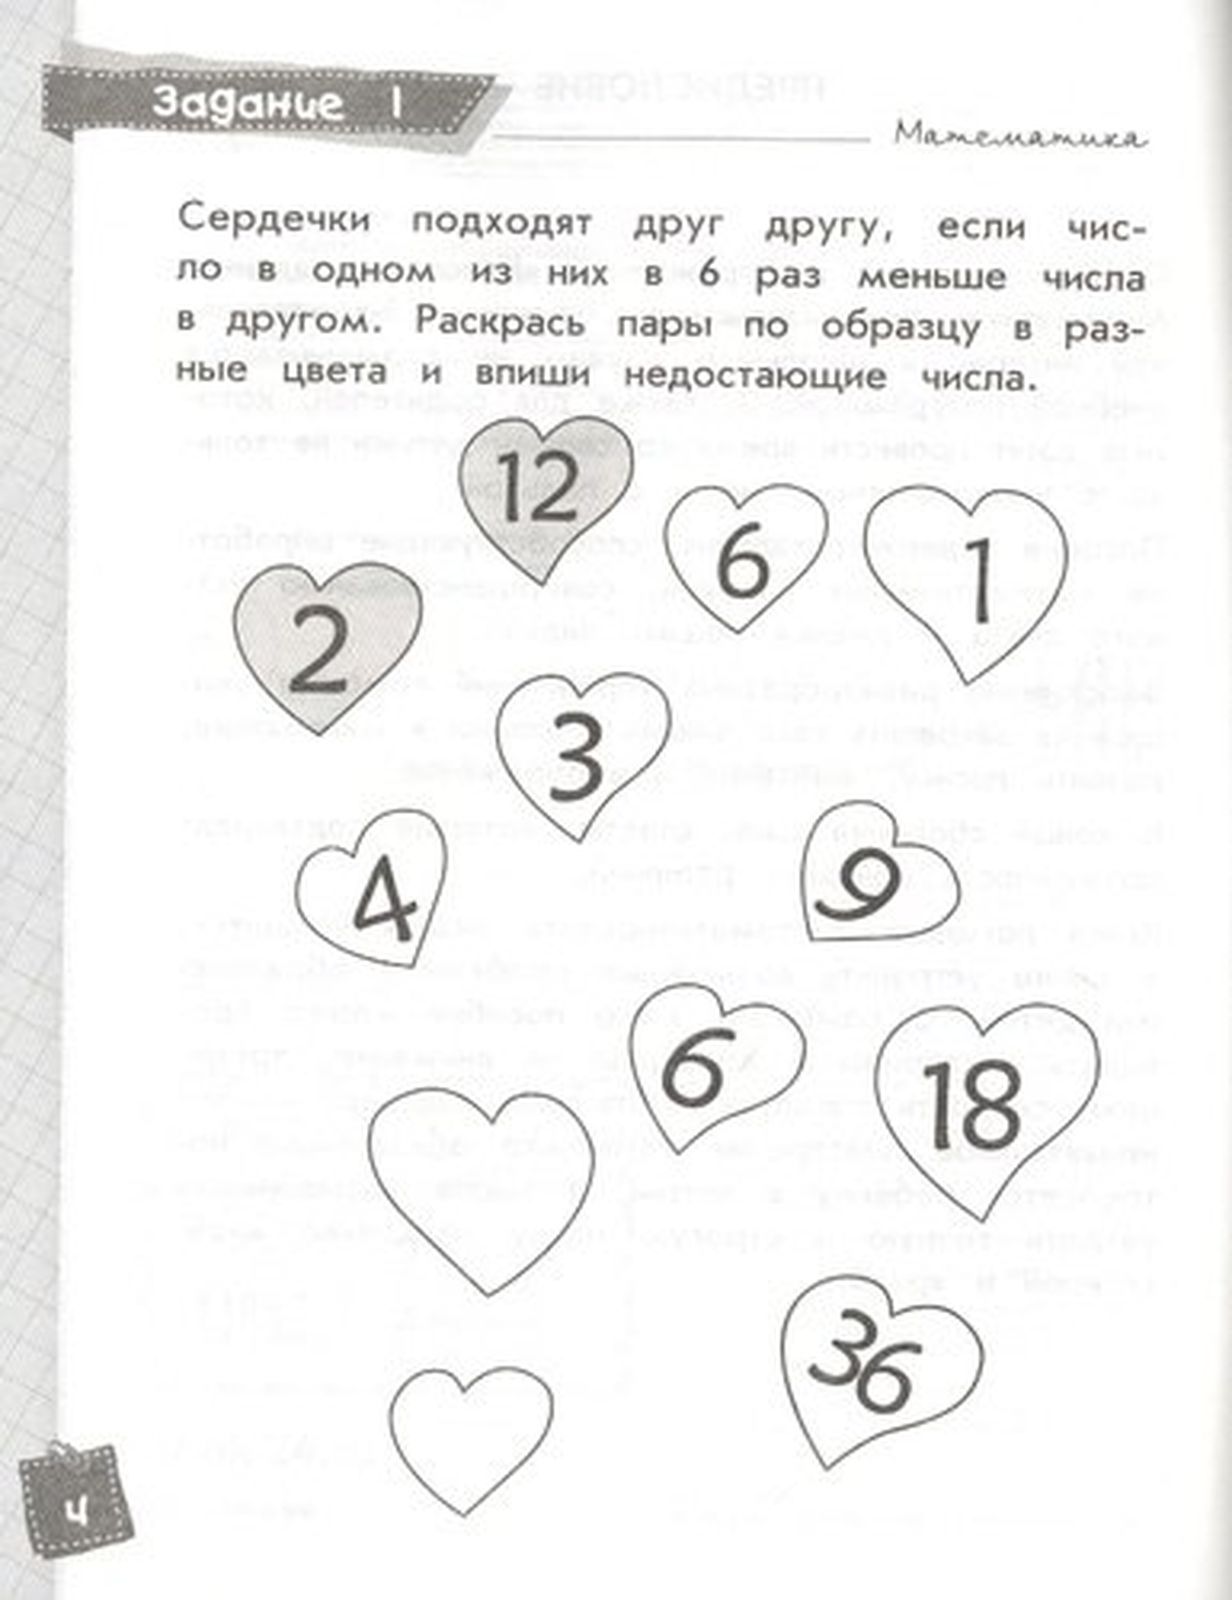 Задание 1
Математика
Сердечки подходят друг другу, если чис-
ло в одном из них в 6 раз меньше числа
в другом. Раскрась пары по образцу в раз-
ные цвета и впиши недостающие числа.
12
6
1
2
3
4
9
6
18
36
4